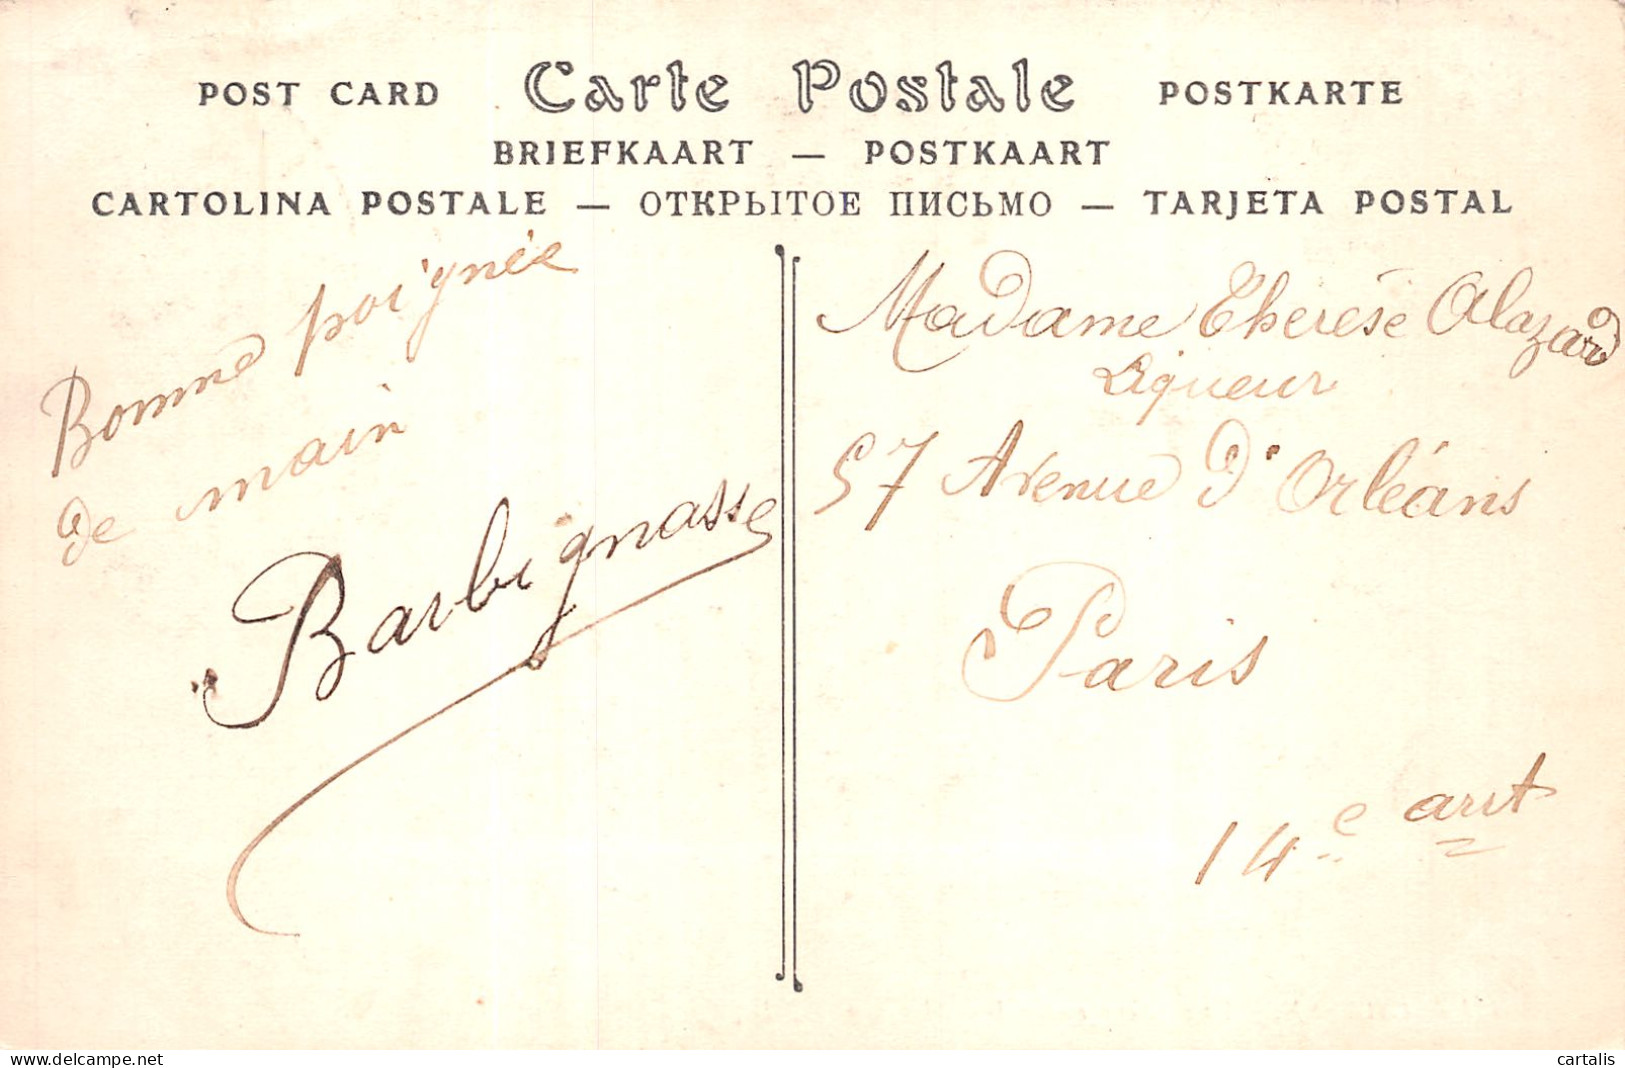 POST CARD Carte Postale POSTKARTE
BRIEFKAART — POSTKAART
CARTOLINA POSTALE — ОТКРЫТОЕ ПИСЬМО — TARJETA POSTAL
Bonne poignée
de main
Barbignasse
Madame Therése Alazard
Liqueur
57 Avenue d'Orléans
Paris
14e arrt
www.delcampe.net
cartalis